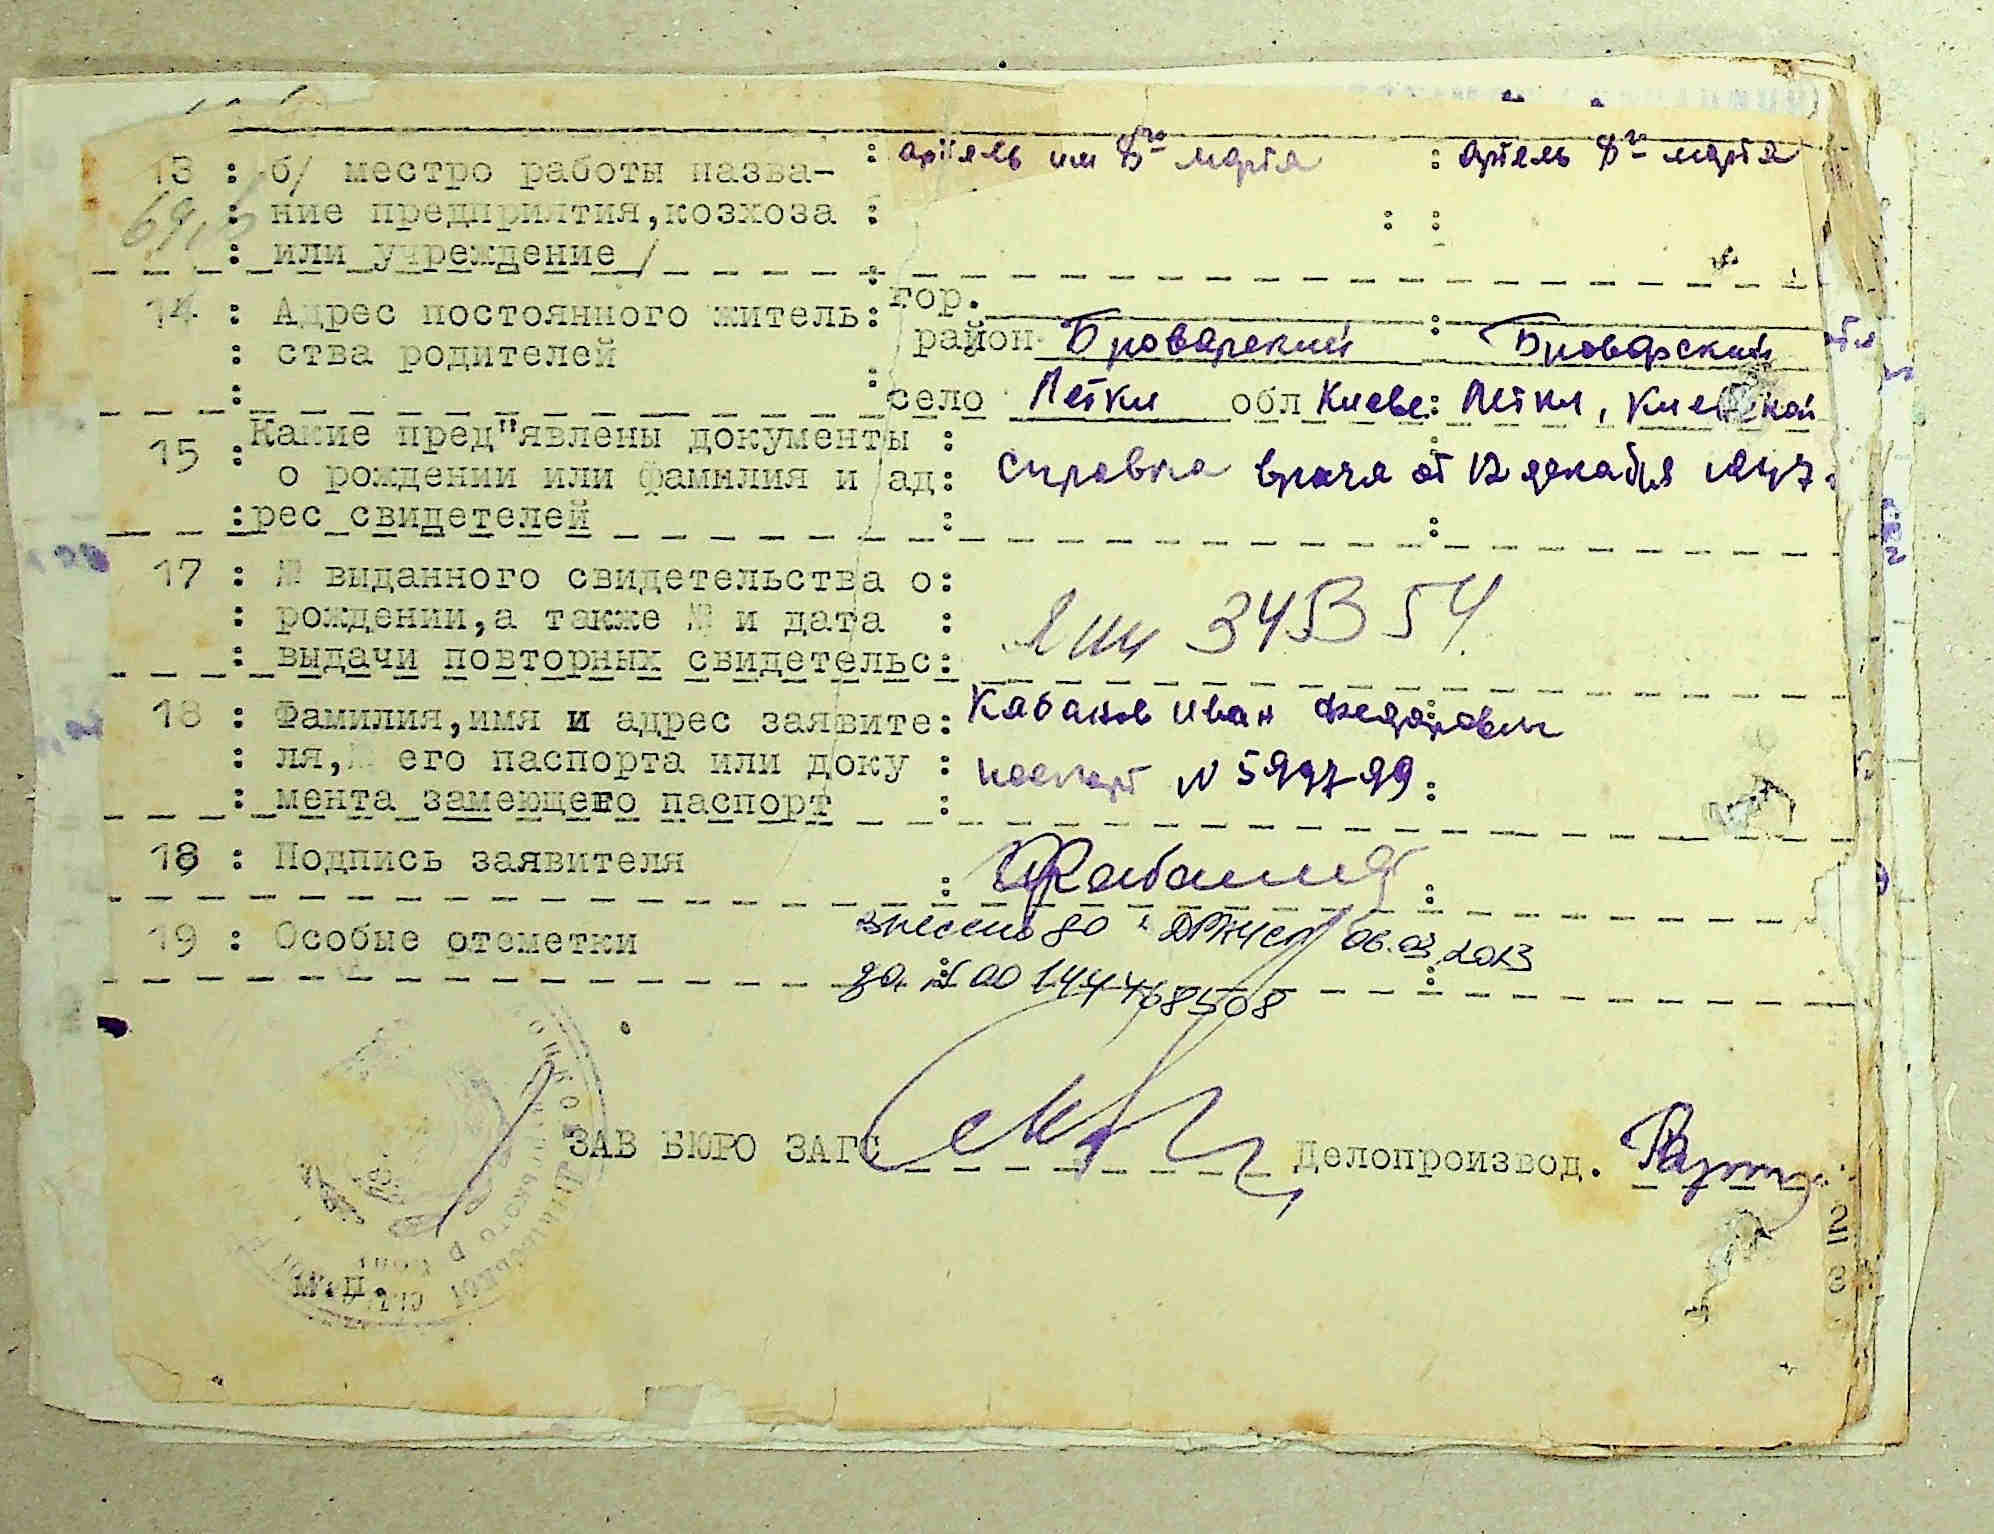 13 : б/ местро работы назва- : артель им 8го марта : артель 8го марта
: ние предприятия,козхоза : : :
: или учреждение/
14 : Адрес постоянного житель: гор.
: ства родителей район Броварский : Броварский
: село Летки обл Киевс: Летки, Киевской
15 : Какие пред"явлены документы :
о рождении или фамилия и ад: справка врача от 12 декабря 1947
:рес свидетелей : :
17 : № выданного свидетельства о:
: рождении,а также № и дата :
: выдачи повторных свидетельс:
18 : Фамилия,имя и адрес заявите: Кабанов Иван Федорович
: ля,№ его паспорта или доку : паспорт N 599799 :
: мента замеющего паспорт :
18 : Подпись заявителя : :
19 : Особые отсметки внесено до ДРАЦСГ 06.03.2013
за № 00144468508
ЗАВ БЮРО ЗАГС Делопроизвод.
М.П.